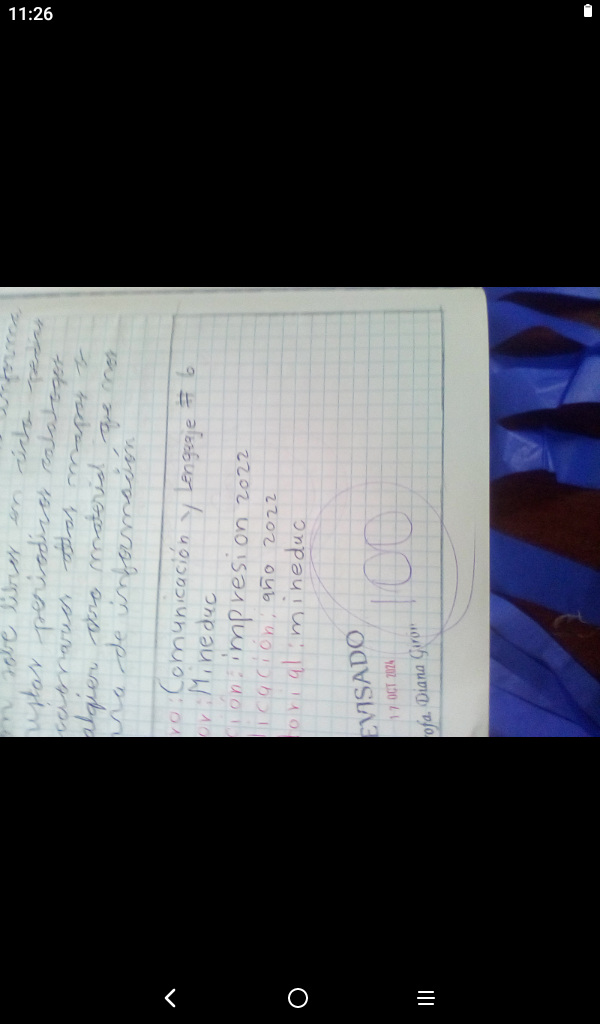 11:26
sobre libros en
periodicos catalogos
atlas mapas y
otro material que nos
de información
ro: Comunicación y Lenguaje # 6
or: Mineduc
ción: impresion 2022
licación: año 2022
torial: mineduc
EVISADO
17 OCT 2024
100
rofa. Diana Giron